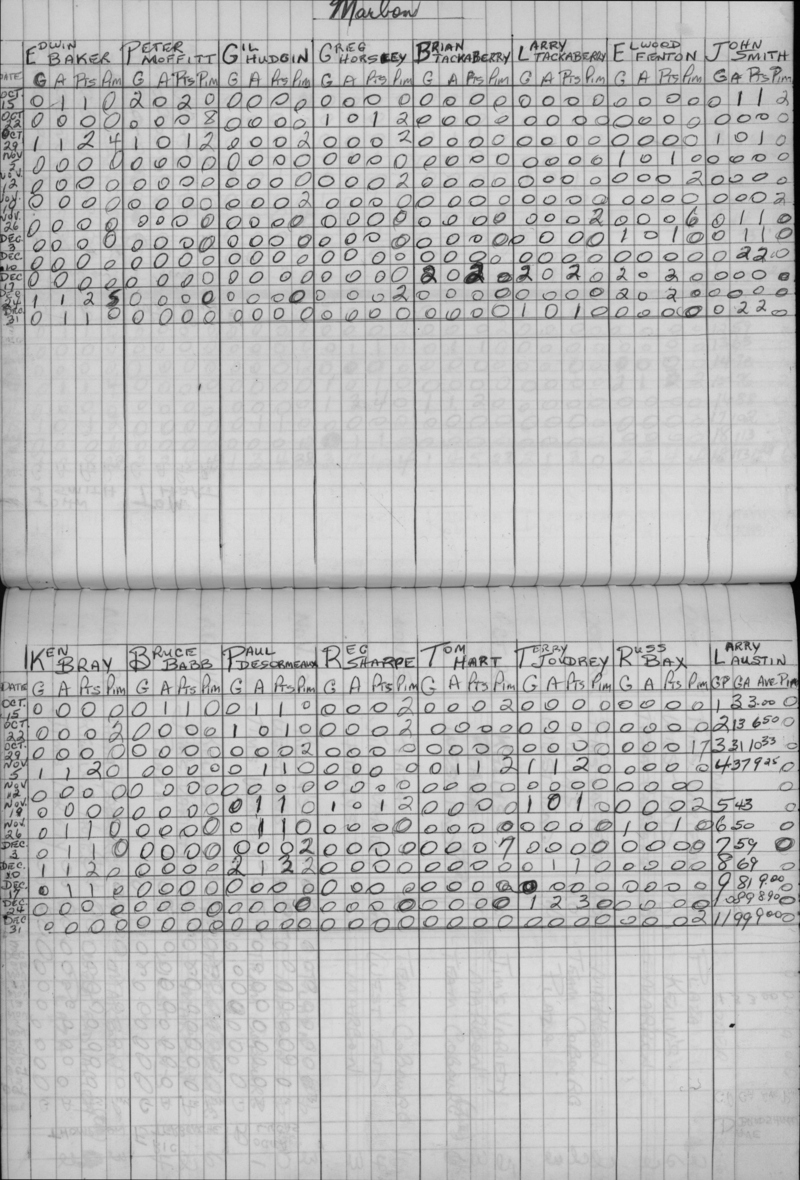 Marbon
EDWIN BAKER PETER MOFFITT GIL HUDGIN GREG HORSLEY BRIAN TACKABERRY LARRY TACKABERRY ELWOOD FIENTON JOHN SMITH
DATE G A Pts Pim G A Pts Pim G A Pts Pim G A Pts Pim G A Pts Pim G A Pts Pim G A Pts Pim G A Pts Pim
OCT. 15 0 1 1 0 2 0 2 0 0 0 0 0 0 0 0 0 0 0 0 0 0 0 0 0 0 0 0 0 0 1 1 2
OCT 22 0 0 0 0 0 0 0 8 0 0 0 0 1 0 1 2 0 0 0 0 0 0 0 0 0 0 0 0 0 0 0 0
OCT 29 1 1 2 4 1 0 1 2 0 0 0 2 0 0 0 2 0 0 0 0 0 0 0 0 0 0 0 0 1 0 1 0
NOV 5 0 0 0 0 0 0 0 0 0 0 0 0 0 0 0 0 0 0 0 0 0 0 0 0 1 0 1 0 0 0 0 0
NOV. 12 0 0 0 0 0 0 0 0 0 0 0 0 0 0 0 2 0 0 0 0 0 0 0 0 0 0 0 2 0 0 0 0
NOV. 19 0 0 0 0 0 0 0 0 0 0 0 2 0 0 0 0 0 0 0 0 0 0 0 0 0 0 0 0 0 0 0 2
NOV. 26 0 0 0 0 0 0 0 0 0 0 0 0 0 0 0 0 0 0 0 0 0 0 0 2 0 0 0 6 0 1 1 0
DEC 3 0 0 0 0 0 0 0 0 0 0 0 0 0 0 0 0 0 0 0 0 0 0 0 0 1 0 1 0 0 1 1 0
DEC. 10 0 0 0 0 0 0 0 0 0 0 0 0 0 0 0 0 0 0 0 0 0 0 0 0 0 0 0 0 0 2 2 0
DEC 17 0 0 0 0 0 0 0 0 0 0 0 0 0 0 0 0 2 0 2 0 2 0 2 0 2 0 2 0 0 0 0 0
DEC 24 1 1 2 5 0 0 0 0 0 0 0 0 0 0 0 2 0 0 0 0 0 0 0 0 2 0 2 0 0 0 0 0
DEC. 31 0 1 1 0 0 0 0 0 0 0 0 0 0 0 0 0 0 0 0 0 1 0 1 0 0 0 0 0 0 2 2 0
KEN BRAY BRUCE BABB PAUL DESORMEAUX REG SHARPE TOM HART TERRY JOUDREY RUSS BAX LARRY LAUSTIN
DATE G A Pts Pim G A Pts Pim G A Pts Pim G A Pts Pim G A Pts Pim G A Pts Pim G A Pts Pim GP GA AVE. Pim
OCT. 15 0 0 0 0 0 1 1 0 0 1 1 0 0 0 0 2 0 0 0 2 0 0 0 0 0 0 0 0 1 3 3.00 0
OCT. 22 0 0 0 2 0 0 0 0 1 0 1 0 0 0 0 2 0 0 0 0 0 0 0 0 0 0 0 0 2 13 6.50 0
OCT. 29 0 0 0 0 0 0 0 0 0 0 0 2 0 0 0 0 0 0 0 0 0 0 0 0 0 0 0 17 3 31 10.33 0
NOV 5 1 1 2 0 0 0 0 0 0 1 1 0 0 0 0 0 0 1 1 2 1 1 2 0 0 0 0 0 4 37 9.25 0
NOV 12 0 0 0 0 0 0 0 0 0 0 0 0 0 0 0 0 0 0 0 0 0 0 0 0 0 0 0 0
NOV. 19 0 0 0 0 0 0 0 0 0 1 1 0 1 0 1 2 0 0 0 0 1 0 1 0 0 0 0 2 5 43 0
NOV. 26 0 1 1 0 0 0 0 0 0 1 1 0 0 0 0 0 0 0 0 0 0 0 0 0 1 0 1 0 6 50 0
DEC. 3 0 1 1 0 0 0 0 0 0 0 0 2 0 0 0 0 0 0 0 7 0 0 0 0 0 0 0 0 7 59 0
DEC. 10 1 1 2 0 0 0 0 0 2 1 3 2 0 0 0 0 0 0 0 0 0 1 1 0 0 0 0 0 8 69 0
DEC. 17 0 1 1 0 0 0 0 0 0 0 0 0 0 0 0 0 0 0 0 0 0 0 0 0 0 0 0 0 9 81 9.00 0
DEC 24 0 0 0 0 0 0 0 0 0 0 0 0 0 0 0 0 0 0 0 0 1 2 3 0 0 0 0 0 10 89 8.90 0
DEC 31 0 0 0 0 0 0 0 0 0 0 0 0 0 0 0 0 0 0 0 0 0 0 0 0 0 0 0 2 11 99 9.00 0